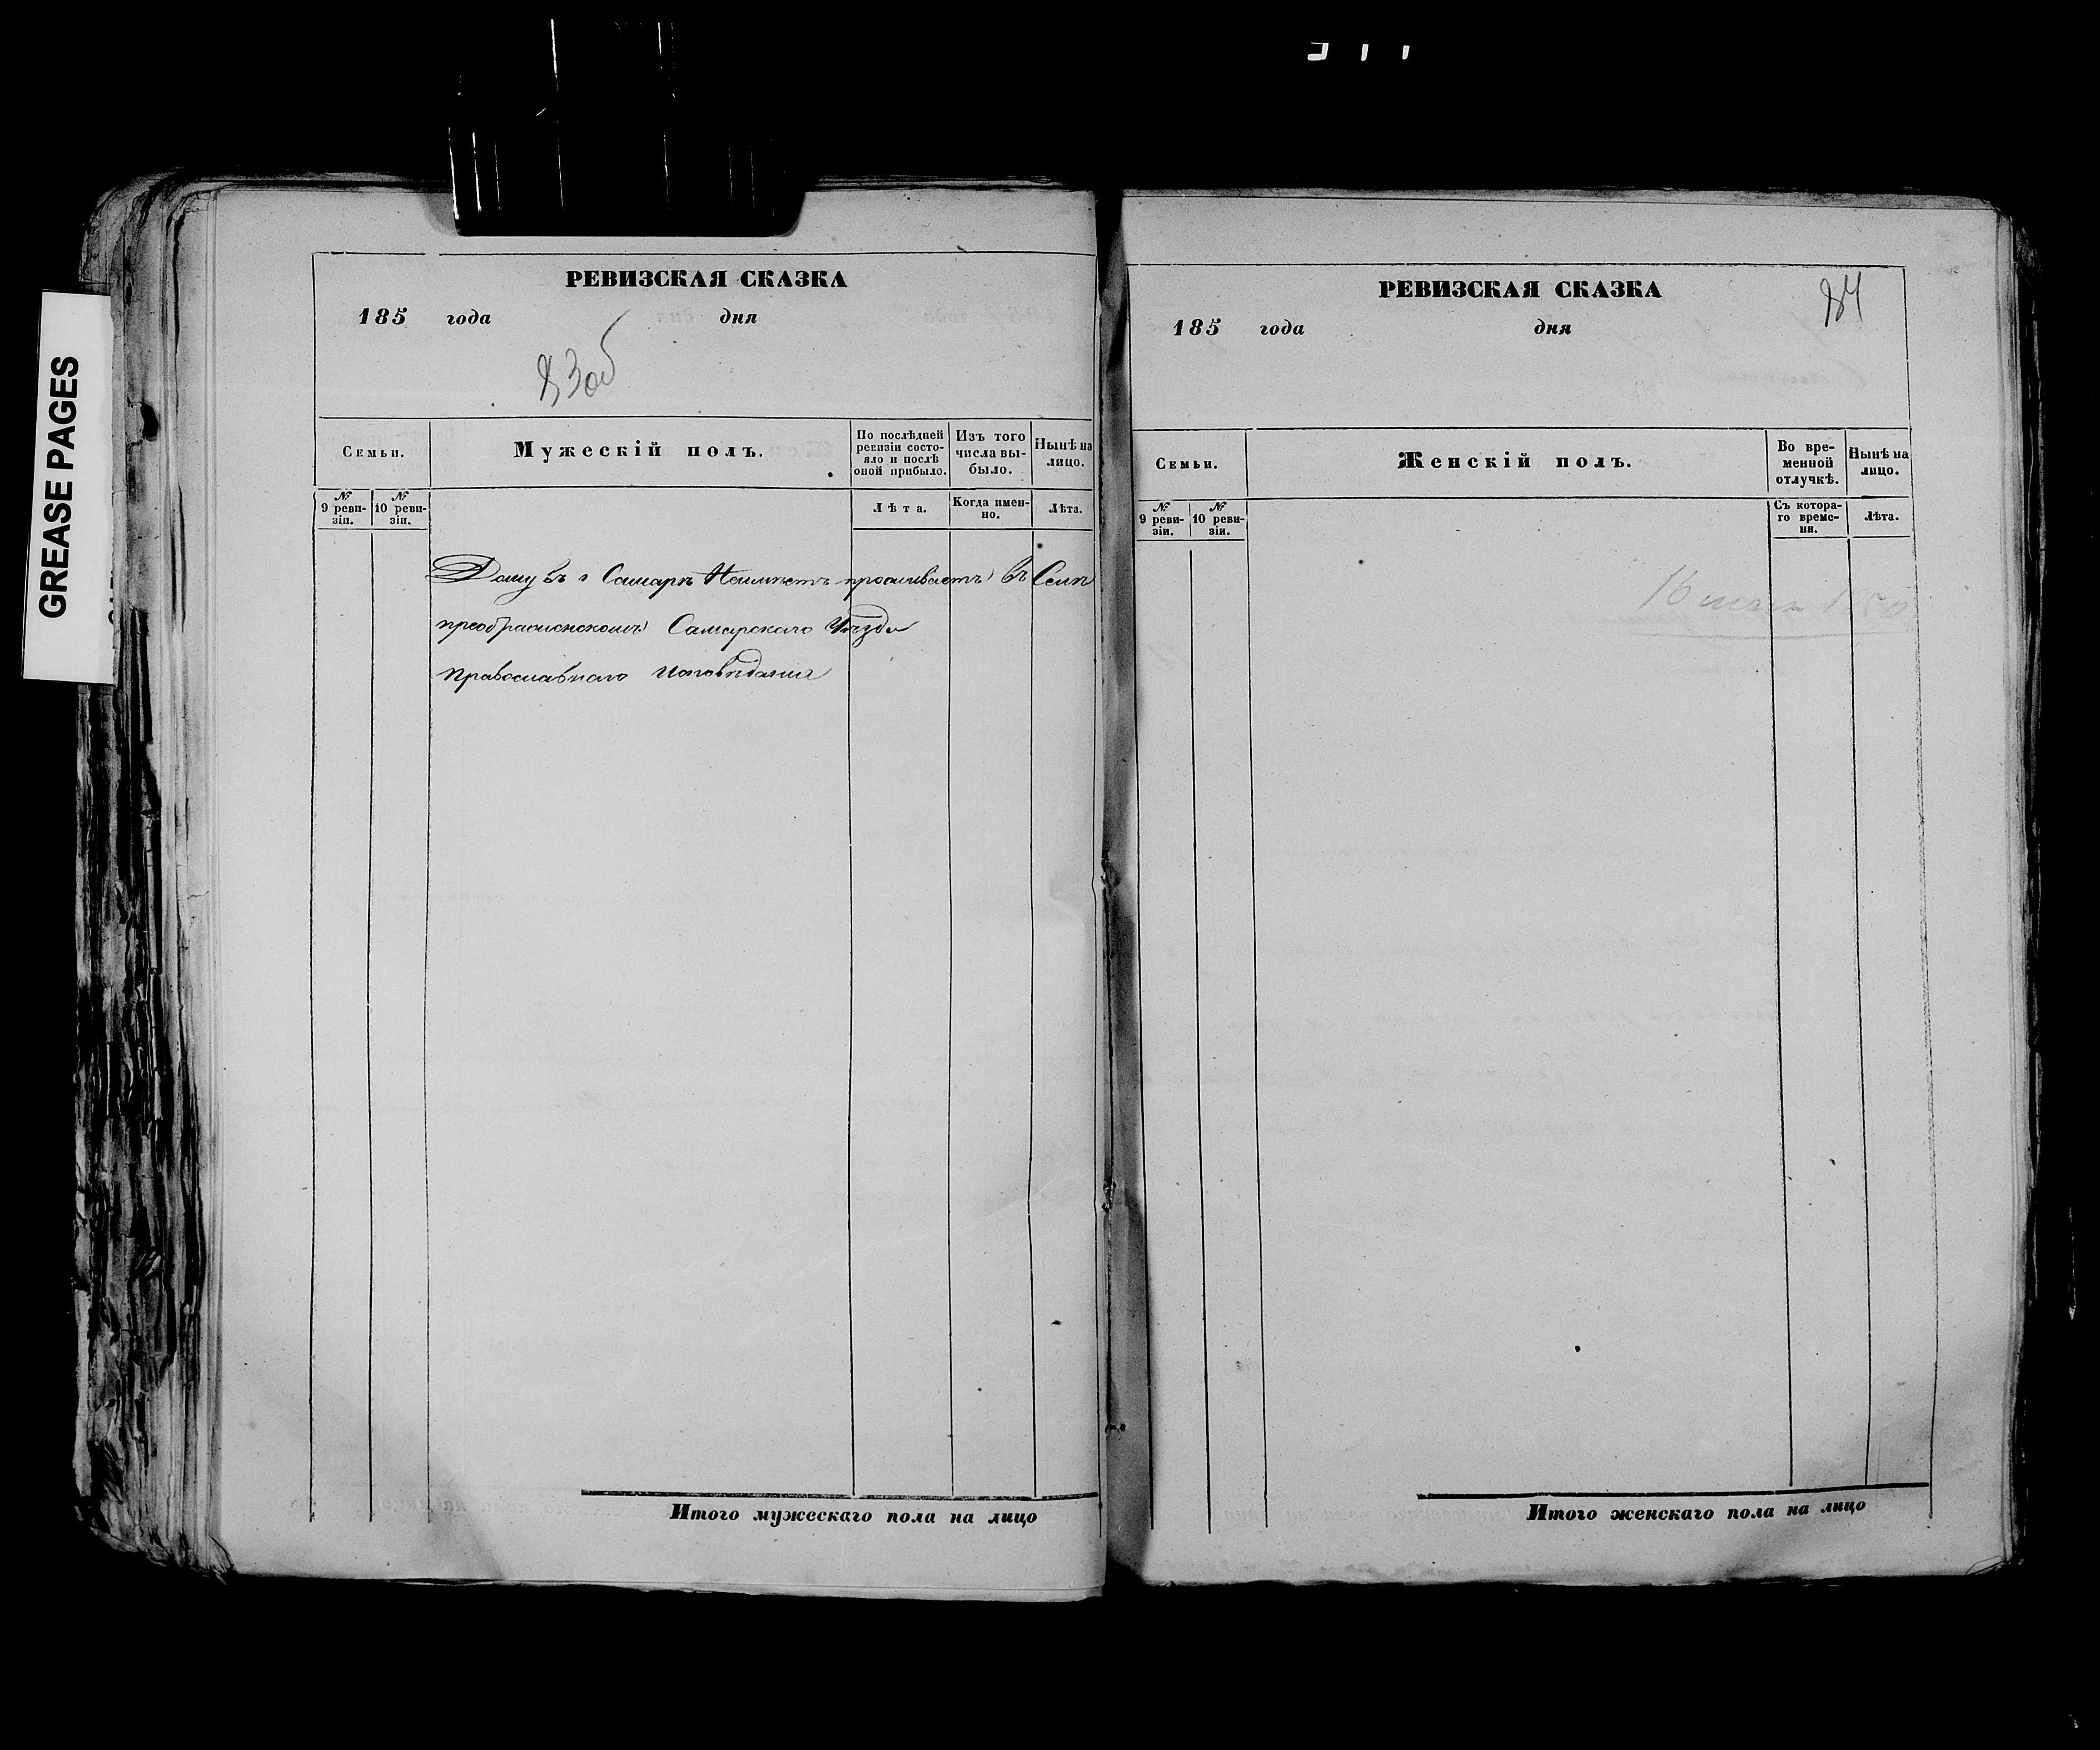 GREASE PAGES
РЕВИЗСКАЯ СКАЗКА
185 года дня
83об
Семьи.
Мужескій полъ.
По послѣдней ревизіи состояло и послѣ оной прибыло.
Изъ того числа выбыло.
Нынѣ на лицо.
№ 9 ревизіи.
№ 10 ревизіи.
Лѣта.
Когда именно.
Лѣта.
Дому въ г Самарѣ Неимѣетъ проживаетъ въ Селѣ
преображенскомъ Самарского Уѣзда
православного исповѣдания
Итого мужескаго пола на лицо
РЕВИЗСКАЯ СКАЗКА
84
185 года дня
Семьи.
Женскій полъ.
Во временной отлучкѣ.
Нынѣ на лицо.
№ 9 ревизіи.
№ 10 ревизіи.
Съ котораго времени.
Лѣта.
Итого женскаго пола на лицо